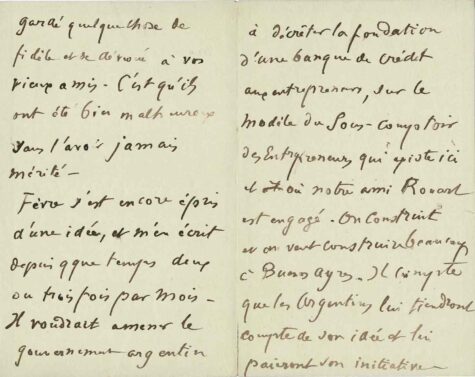 gardé quelque chose de
fidèle et de dévoué à vos
vieux amis - C'est qu'ils
ont été bien malheureux
sans l'avoir jamais
mérité -
Fèvre s'est encore épris
d'une idée, et m'en écrit
depuis qque temps deux
ou trois fois par mois -
Il voudrait amener le
gouvernement argentin
à décréter la fondation
d'une banque de crédit
aux entrepreneurs, sur le
modèle du Sous-Comptoir
des Entrepreneurs qui existe ici
et où notre ami Rouart
est engagé. On construit
et on veut construire beaucoup
à Buenos Ayres. Il compte
que les Argentins lui tiendront
compte de son idée et lui
paieront son initiative -